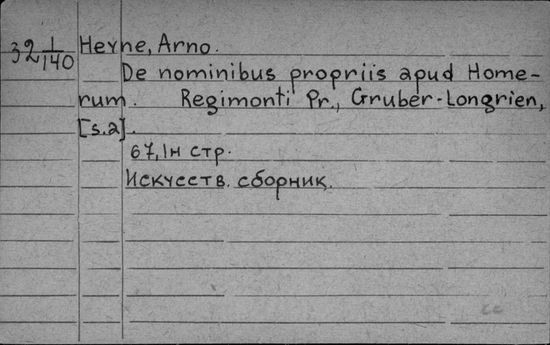 32 1/140 Heyne, Arno.
De nominibus propriis apud Home-
rum. Regimonti Pr., Gruber-Longrien,
[s.a].
67, 1н стр.
Искусств. сборник.
cc